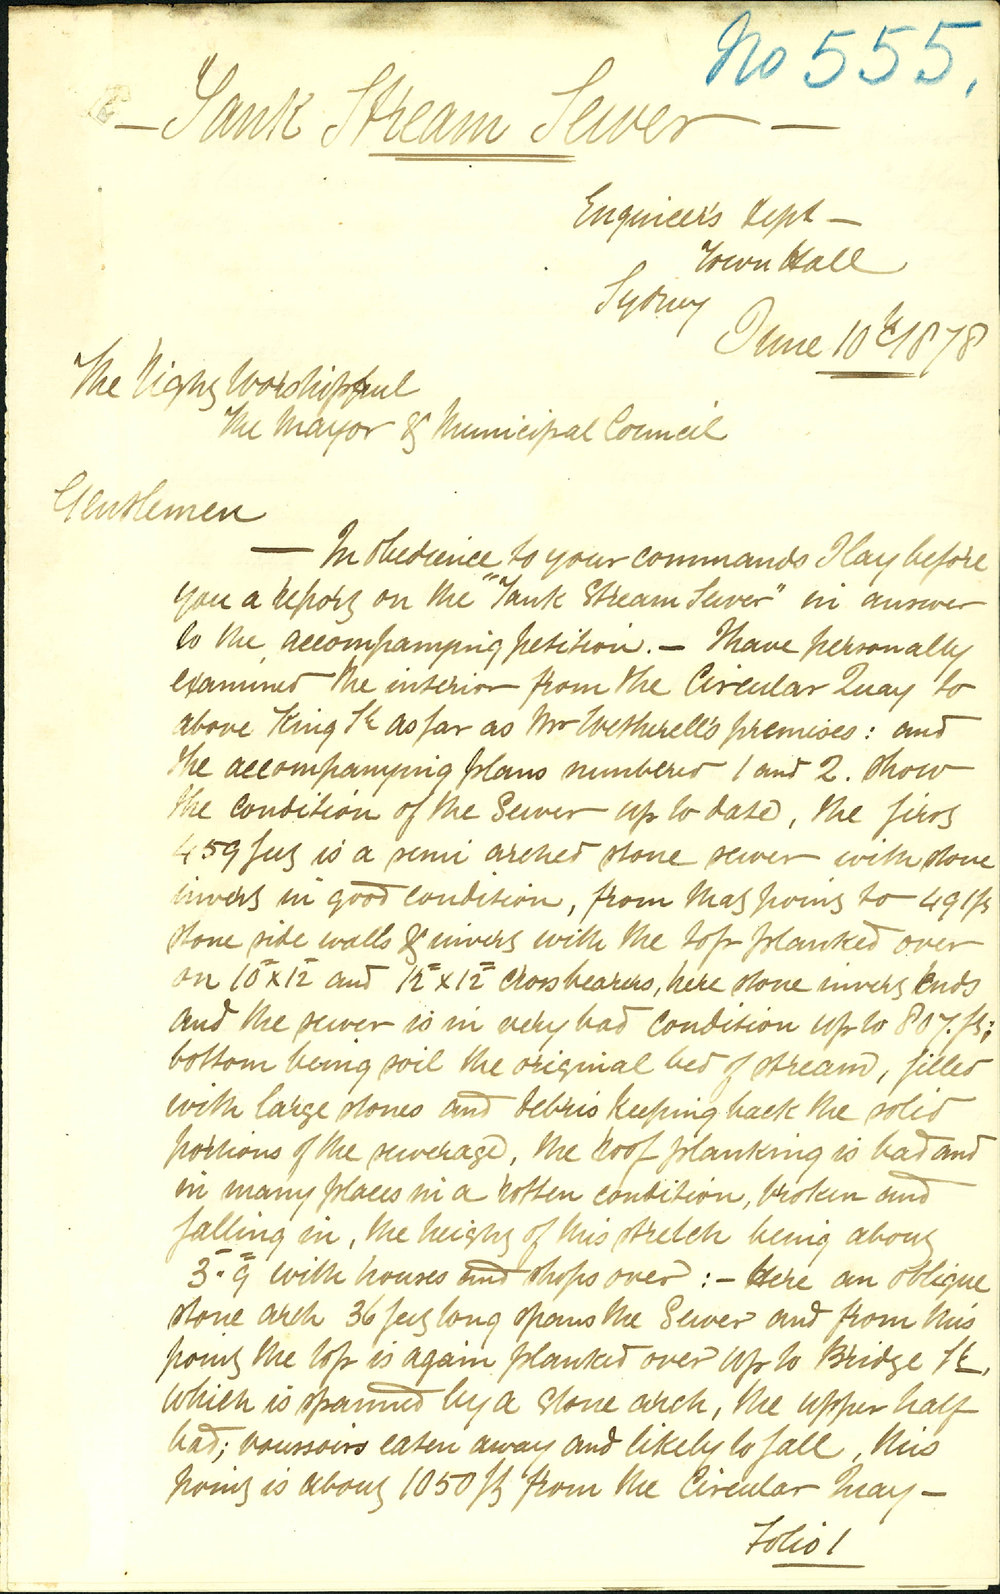 No 555.
— Tank Stream Sewer —
Engineer's Dept —
Town Hall
Sydney
June 10th 1878
The Right Worshipful
The Mayor & Municipal Council
Gentlemen
— In obedience to your commands I lay before
you a report on the "Tank Stream Sewer" in answer
to the accompanying petition. — I have personally
examined the interior from the Circular Quay to
above King St as far as Mr Wetherell's premises: and
the accompanying plans numbered 1 and 2. show
the condition of the Sewer up to date, the first
459 feet is a semi arched stone sewer with stone
invert in good condition, from that point to 491 ft
stone side walls & invert with the top planked over
on 10" x 12" and 12" x 12" cross bearers, here stone invert ends
and the sewer is in very bad condition up to 807. ft;
bottom being soil the original bed of stream, filled
with large stones and debris keeping back the solid
portions of the sewerage, the roof planking is bad and
in many places in a rotten condition, broken and
falling in, the height of this stretch being about
3'-9" with houses and shops over: — Here an oblique
stone arch 36 feet long spans the Sewer and from this
point the top is again planked over up to Bridge St.
which is spanned by a stone arch, the upper half
bad; voussoirs eaten away and likely to fall, this
point is about 1050 ft from the Circular Quay —
Folio 1